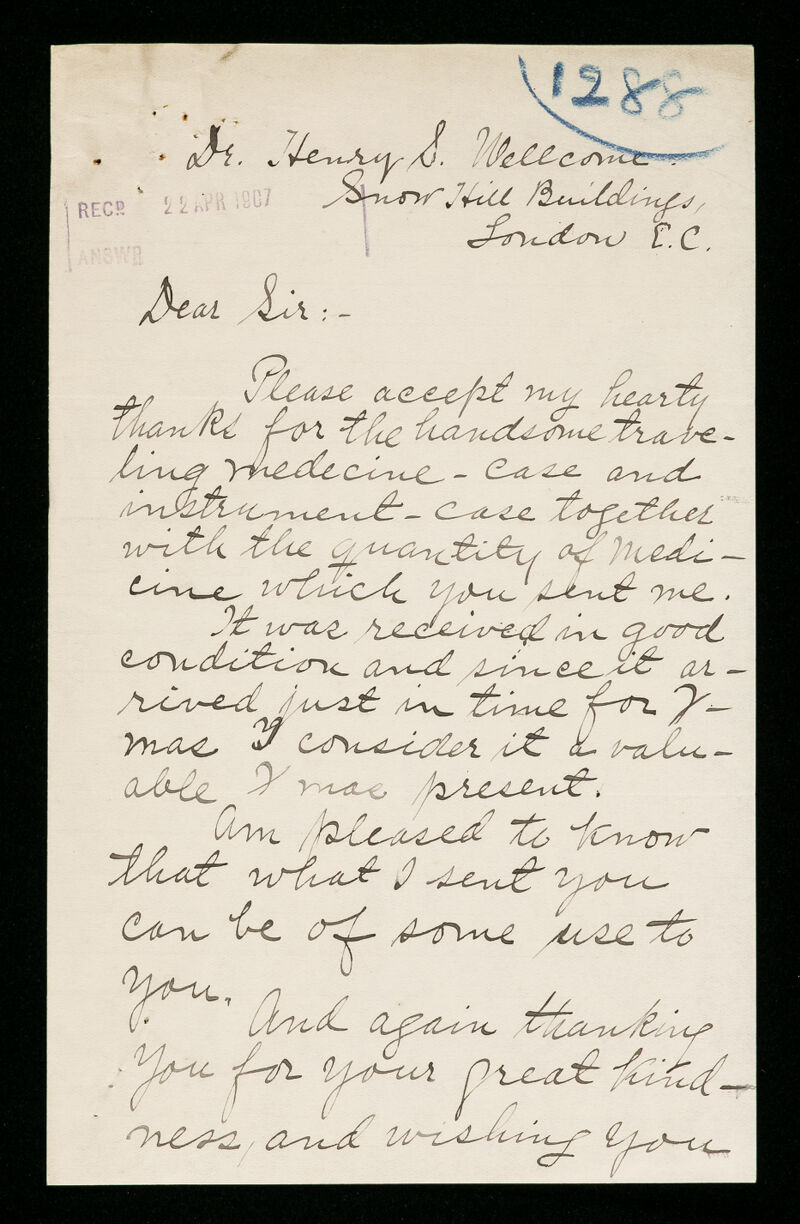 1288
Dr. Henry S. Wellcome.
Snow Hill Buildings,
London E.C.
RECD 22 APR 1907
ANSWR
Dear Sir:-
Please accept my hearty
thanks for the handsome trave-
ling medecine-case and
instrument-case together
with the quantity of Medi-
cine which you sent me.
It was received in good
condition and since it ar-
rived just in time for X-
mas I consider it a valu-
able Xmas present.
Am pleased to know
that what I sent you
can be of some use to
you.
And again thanking
you for your great kind-
ness, and wishing you